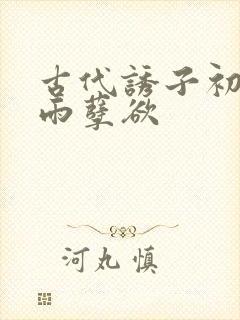 古代誘子初
雨孽欲
河丸慎